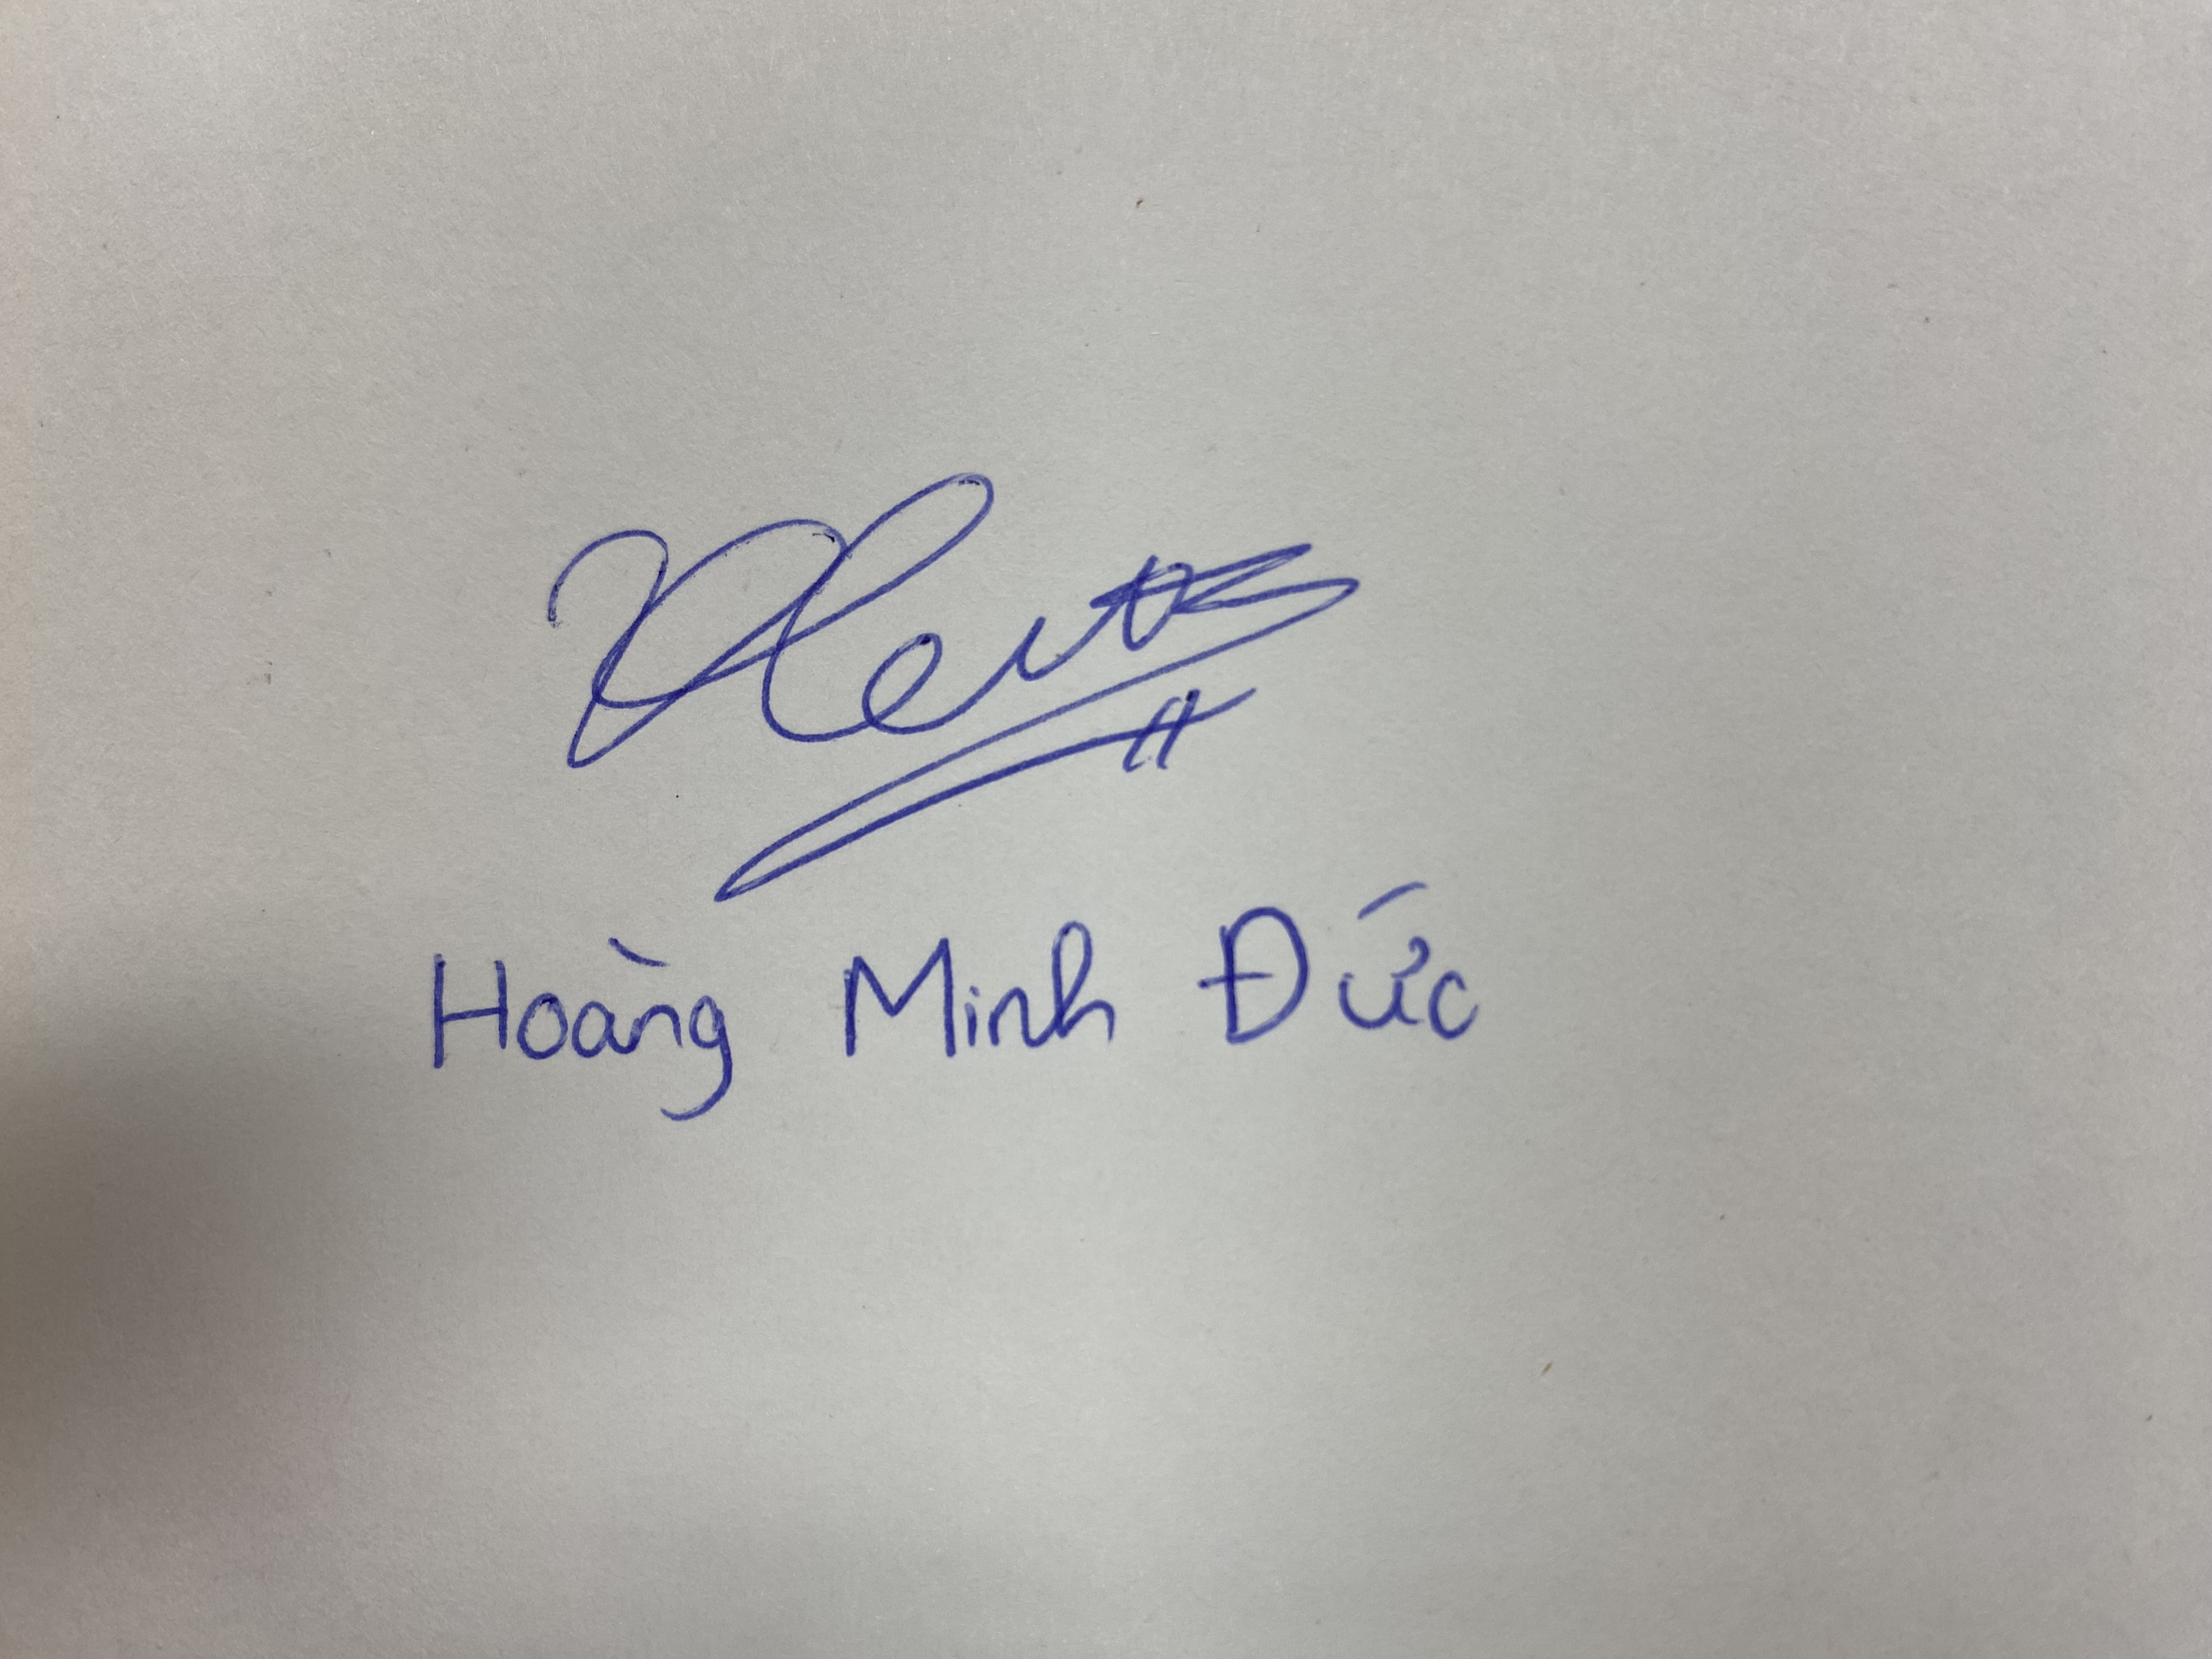 Hoàng Minh Đức